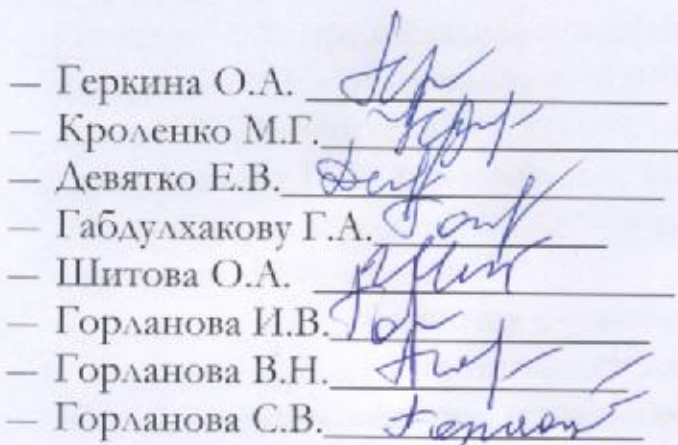 — Геркина О.А.
— Кроленко М.Г.
— Девятко Е.В.
— Габдулхакову Г.А.
— Шитова О.А.
— Горланова И.В.
— Горланова В.Н.
— Горланова С.В.